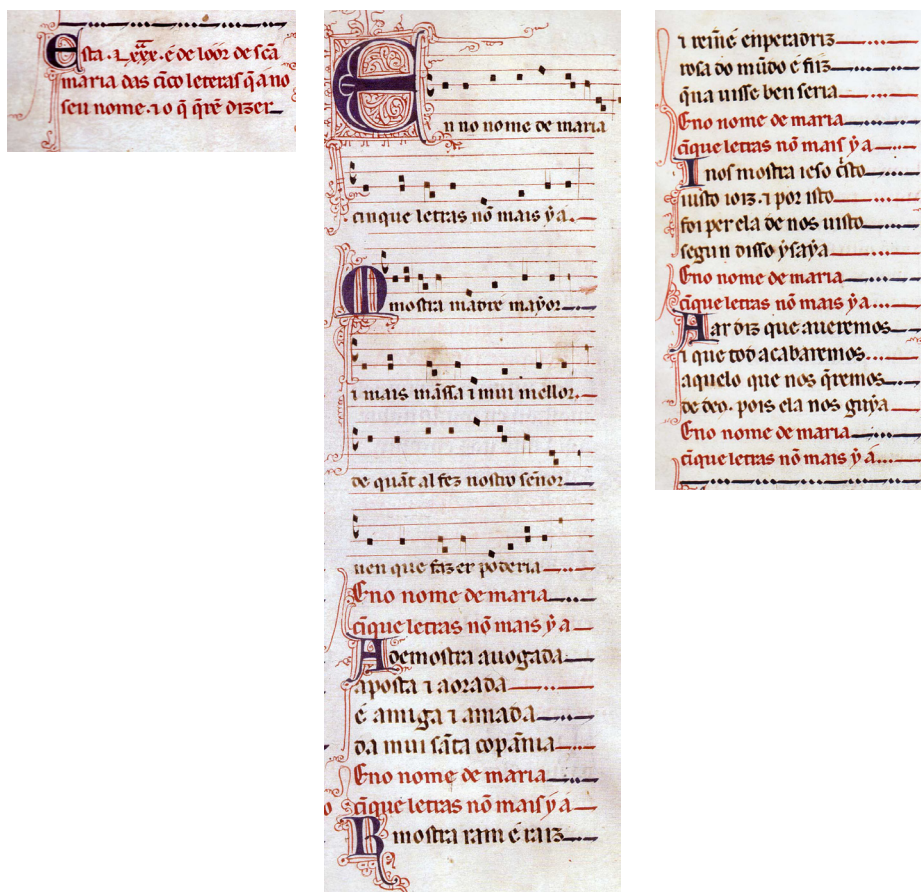 Esta .LXXX. é de loor de scã
maria das cĩco leteras q̃ a no
seu nome. ⁊ o q̃ q̃rẽ dizer
En no nome de maria
cinque letras nõ mais ẏa.
M mostra madre mayor
⁊ mais mãssa ⁊ mui mellor.
de quãt al fez nostro señor
uen que fazer poderia
Eno nome de maria
cĩque letras nõ mais ẏ a
A demostra auogada
aposta ⁊ aorada
é amiga ⁊ amada
da mui sãta cõpãnia
Eno nome de maria
cĩque letras nõ maiſ ẏ á
R mostra ram é raiz
⁊ reiné enperadriz
rosa do mũdo é fiiz
q̃na uisse ben seria
Eno nome de maria
cĩque letras nõ maiſ ẏa
I nos mostra ieso cṙsto
iusto ioiz. ⁊ por isto
foi per ela de nos uisto
segun disso ysaya
Eno nome de maria
cĩque letras nõ mais ẏ a
A ar diz que aueremos
⁊ que tod acabaremos
aquelo que nos q̃remos
de deo. pois ela nos guya
Eno nome de maria
cĩque letras nõ mais ẏ á